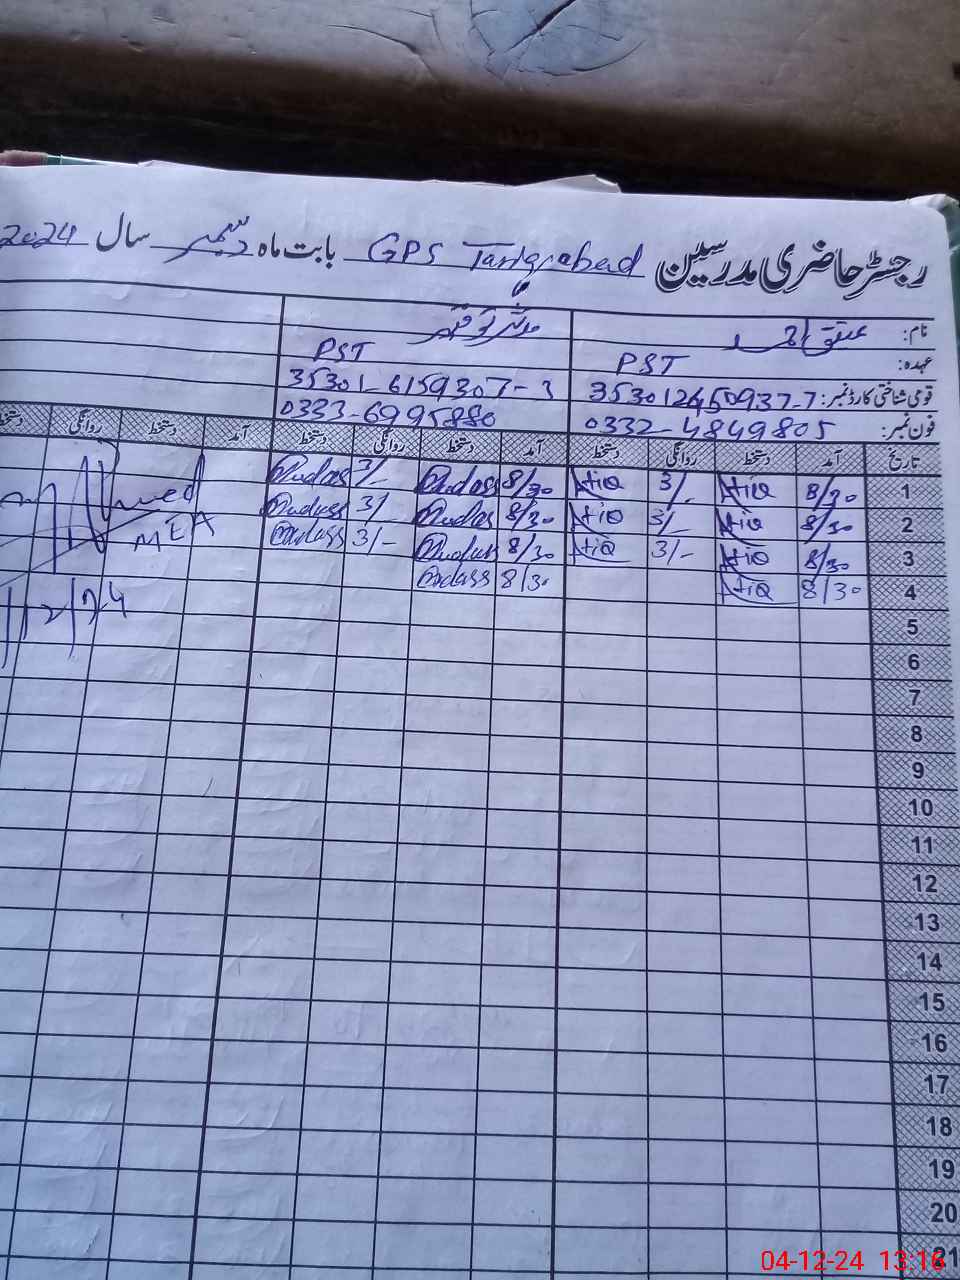 رجسٹر حاضری مدرسین GPS Tariqabad بابت ماہ دسمبر سال 2024
نام: عتیق احمد
عہدہ: PST PST
قومی شناختی کارڈ نمبر: 35301-6159307-3
فون نمبر: 0332-4849805 0333-6995880
تاریخ آمد دستخط روانگی دستخط آمد دستخط روانگی دستخط آمد دستخط روانگی دستخط
1 8/30 Atiq 3/- Atiq 8/30 3/-
2 8/30 Atiq 3/- Atiq 8/30 3/-
3 8/30 Atiq 3/- Atiq 8/30 3/-
4 8/30 Atiq 8/30
MEA
12/24
5
6
7
8
9
10
11
12
13
14
15
16
17
18
19
20
21
04-12-24 13:16